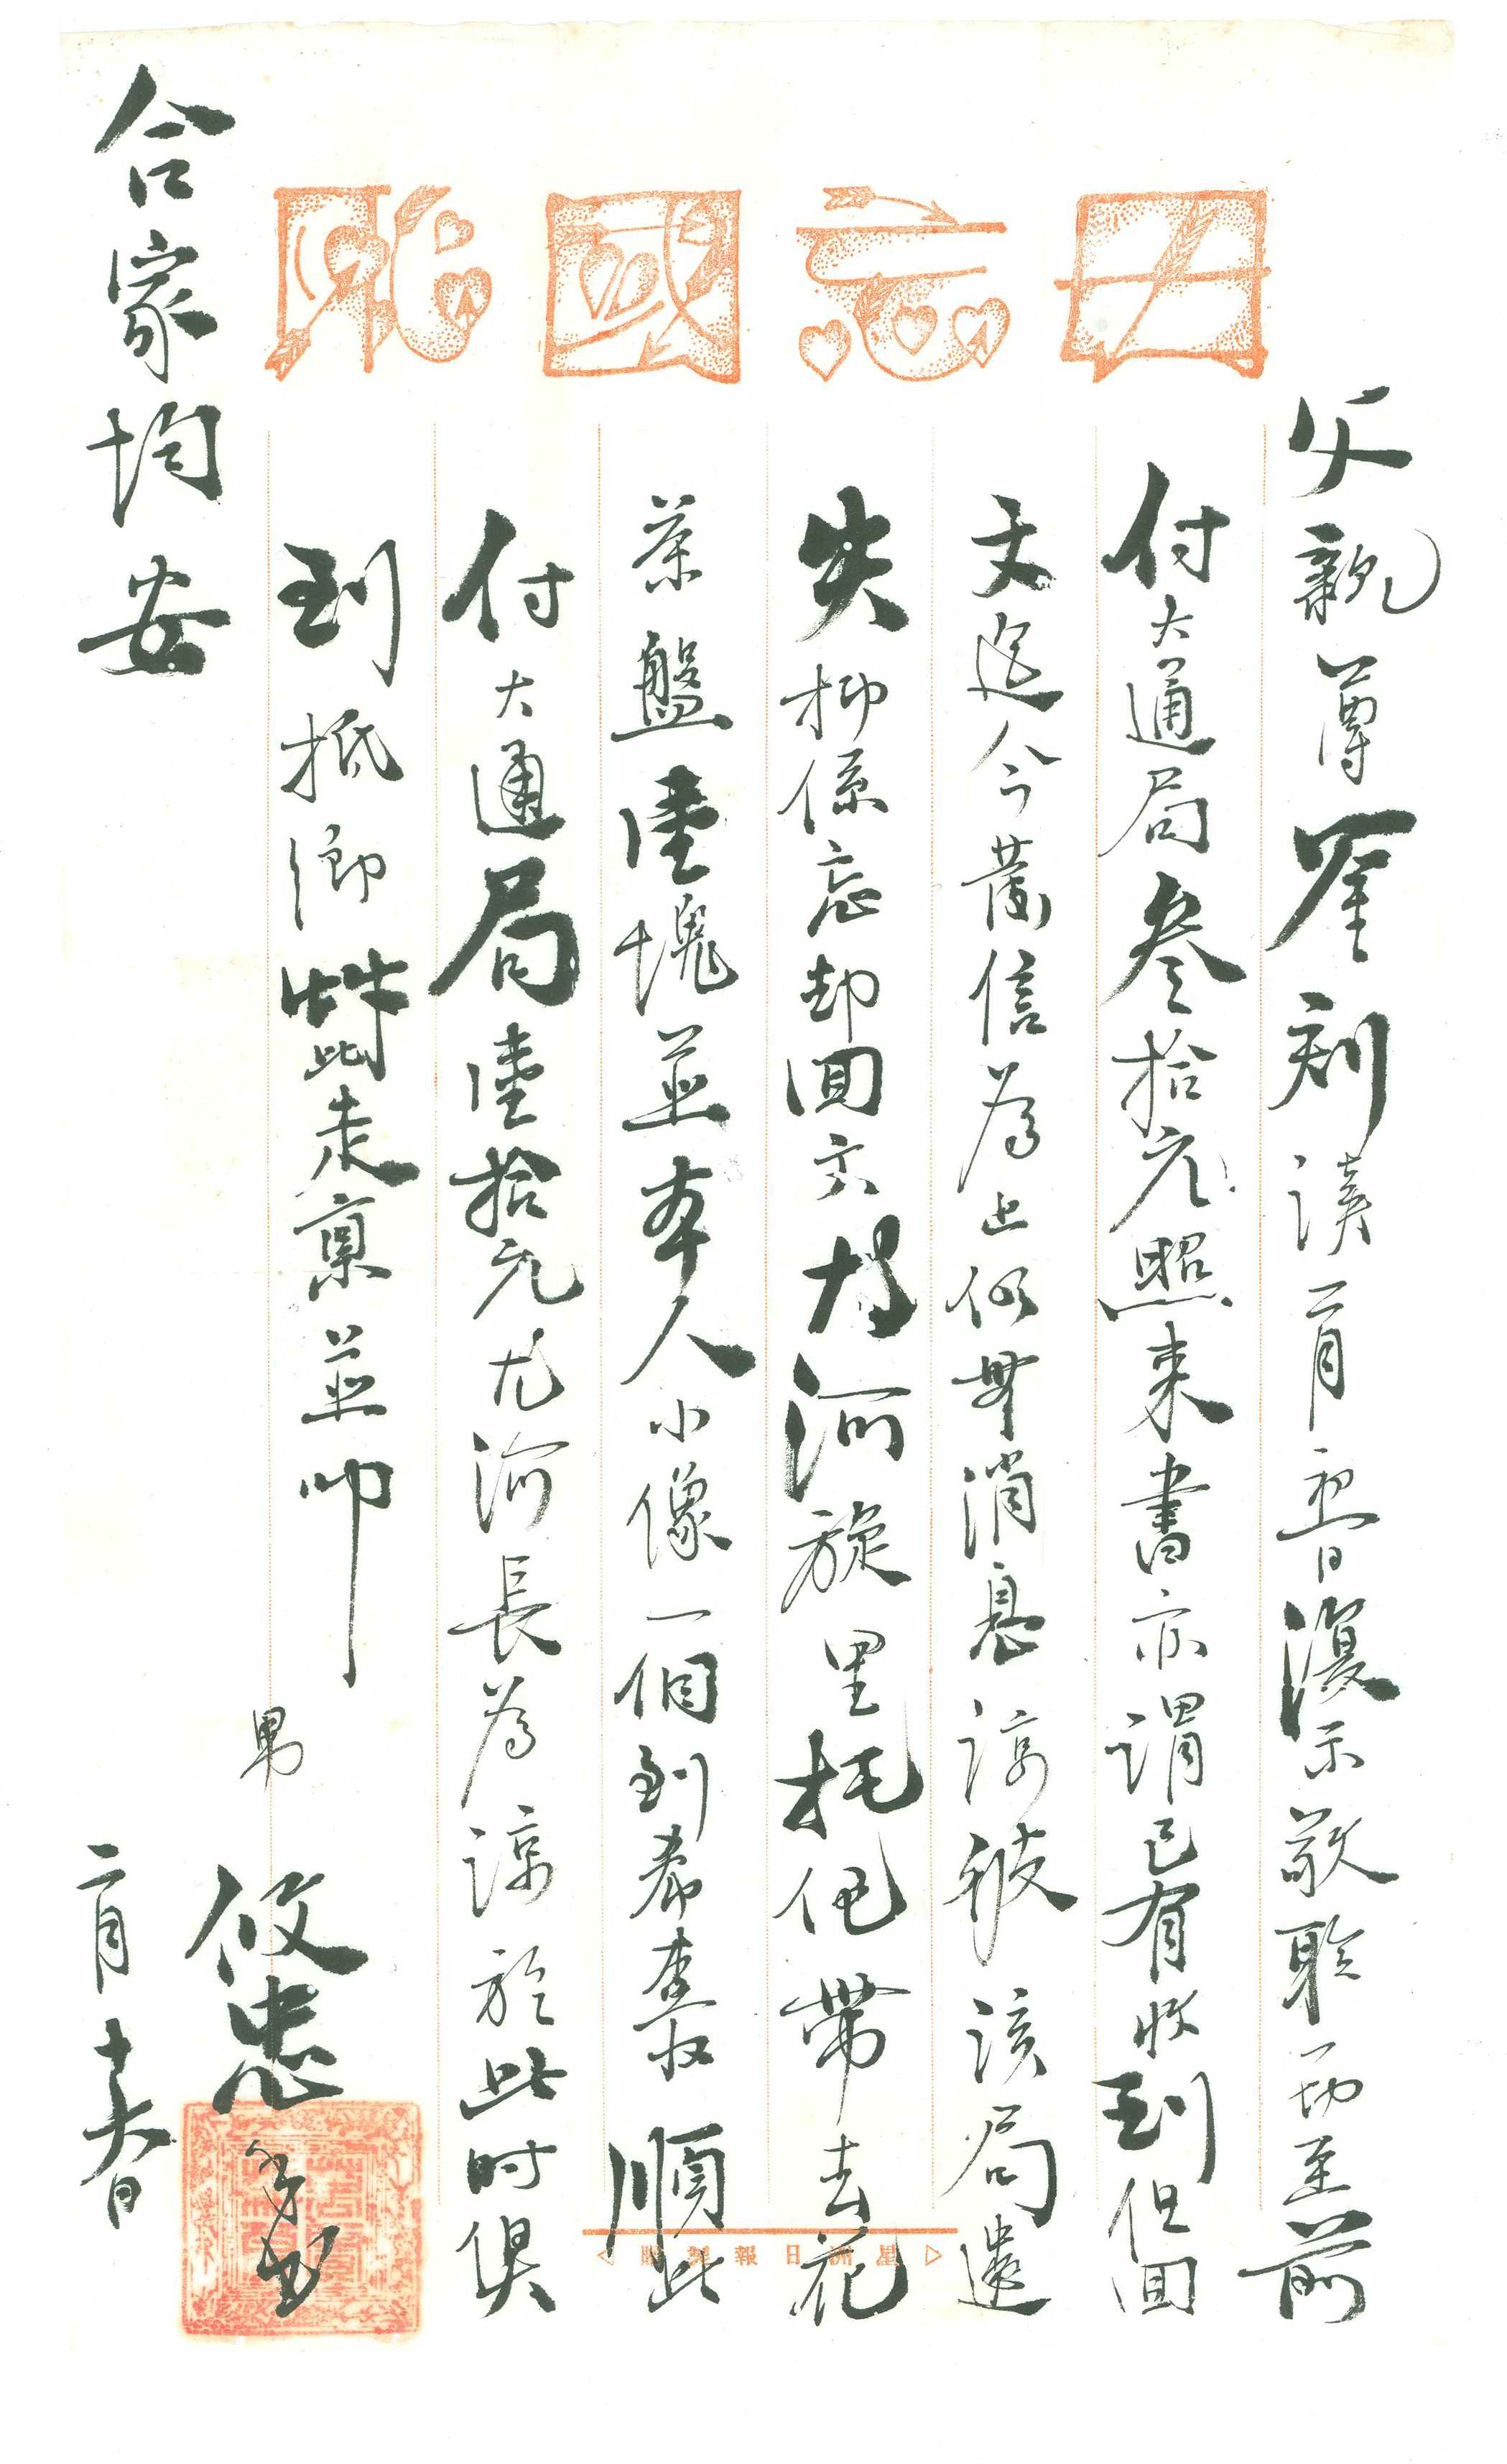 毋忘國恥
父親尊鑒刻讀二月初一日復示敬聆一切至前
付大通局叁拾元照來書亦謂已有收到但回
文迄今舊信為止仍無消息諒被該局遺
失抑係忘却回六
河旋里托他帶去花
茶盤陸塊並本人小像一個到希查收順此
付大通局陸拾元尤河長為諒於此時俱
到抵鄉 此走稟並叩
合家均安
男
攸忠
二月十六日
星洲日報製贈